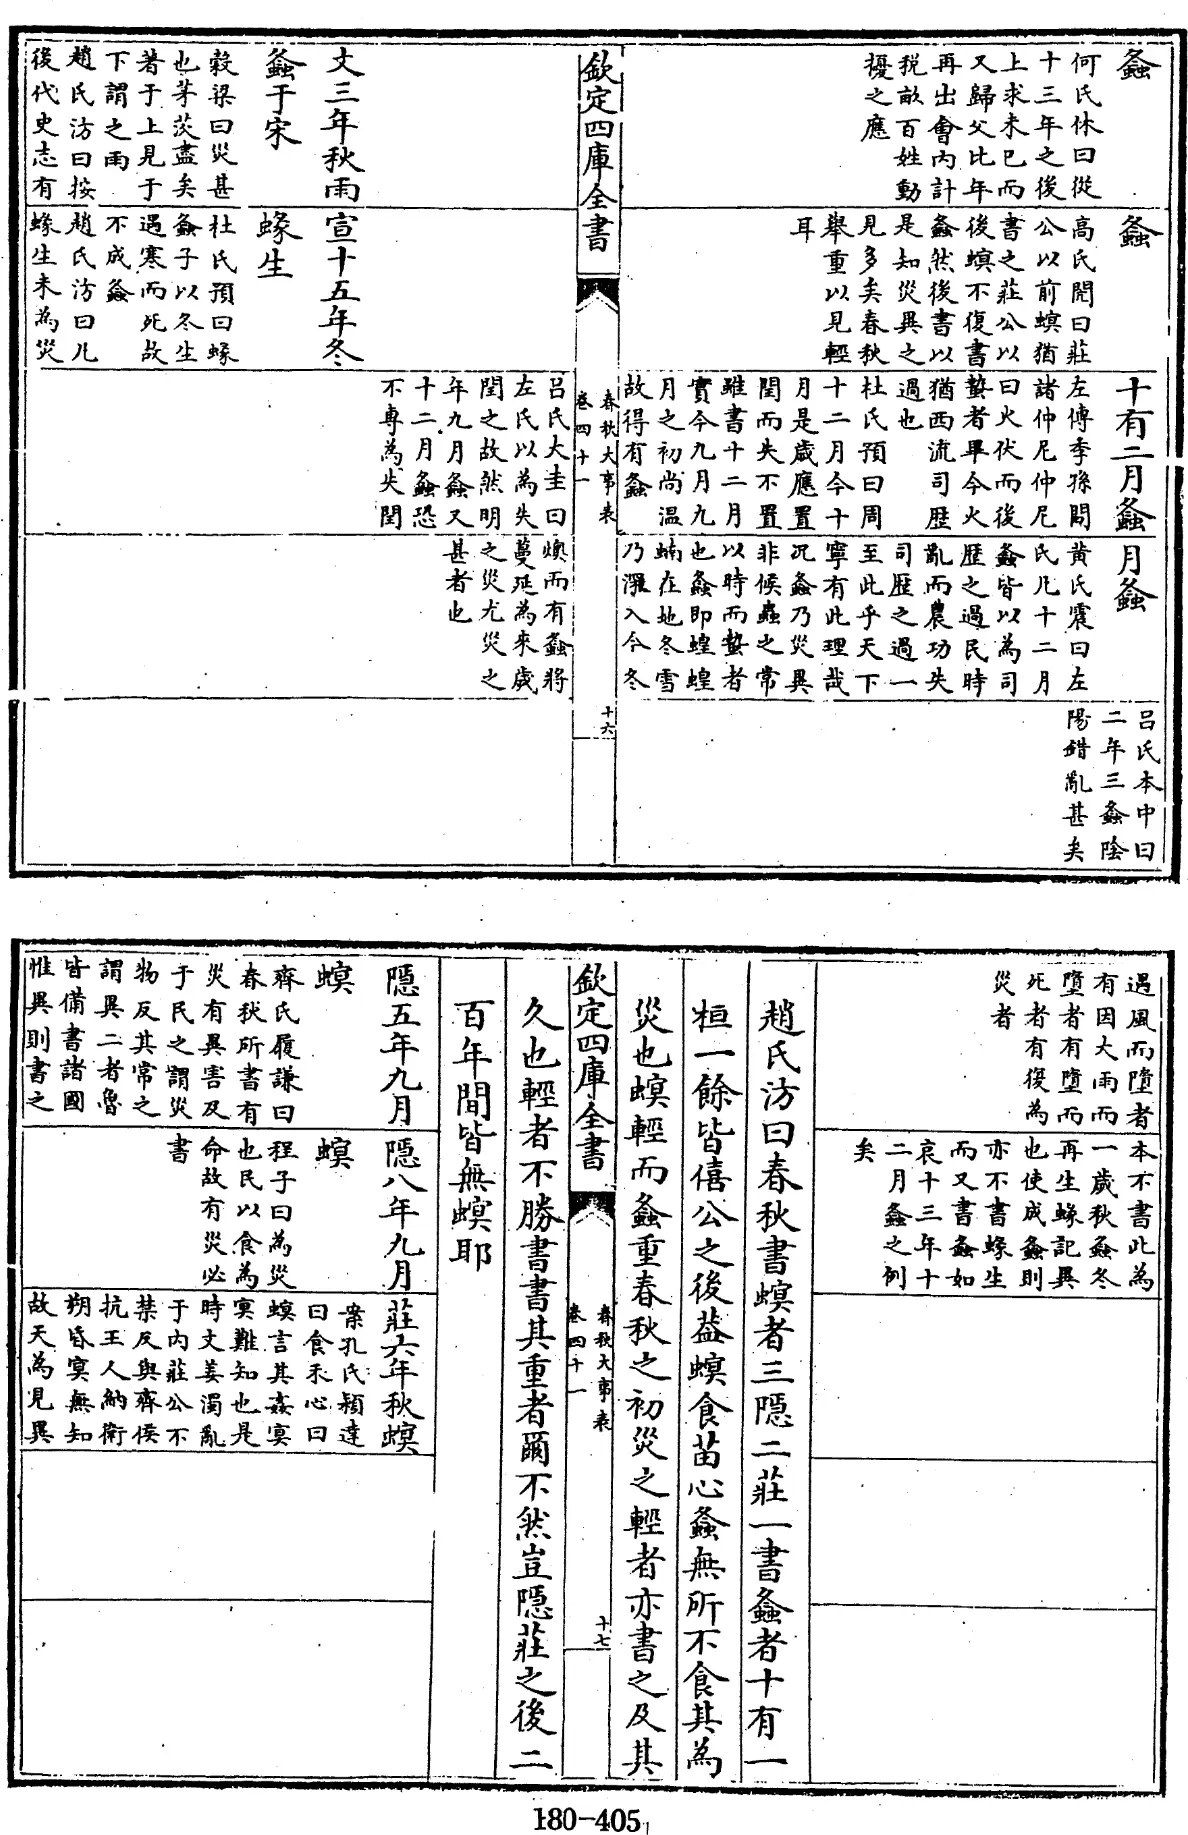 螽
何氏休曰從
十三年之後
上求未已而
又歸父比年
再出會內計
税畝百姓動
擾之應
螽
高氏閌曰莊
公以前螟猶
書之莊公以
後螟不復書
螽然後書以
是知災異之
見多矣春秋
舉重以見輕
耳
十有二月螽
左傳季孫問
諸仲尼仲尼
曰火伏而後
蟄者畢今火
猶西流司歴
過也
杜氏預曰周
十二月今十
月是歳應置
閏而失不置
雖書十二月
實今九月九
月之初尚温
故得有螽
月螽
黄氏震曰左
氏凡十二月
螽皆以為司
歴之過民時
亂而農功失
司歴之過一
至此乎天下
寧有此理哉
况螽乃災異
非候蟲之常
以時而蟄者
也螽即蝗蝗
蝻在地冬雪
乃深入今冬
吕氏本中曰
二年三螽陰
陽錯亂甚矣
欽定四庫全書
春秋大事表
卷四十一
十六
文三年秋雨
螽于宋
穀梁曰災甚
也茅茨盡矣
著于上見于
下謂之雨
趙氏汸曰按
後代史志有
宣十五年冬
蝝生
杜氏預曰蝝
螽子以冬生
遇寒而死故
不成螽
趙氏汸曰凡
蝝生未為災
吕氏大圭曰
左氏以為失
閏之故然明
年九月螽又
十二月螽恐
不専為失閏
燠而有螽將
蔓延為來歳
之災尤災之
甚者也
遇風而墮者
有因大雨而
墮者有墮而
死者有復為
災者
本不書此為
一歳秋螽冬
再生蝝記異
也使成螽則
亦不書蝝生
而又書螽如
哀十三年十
二月螽之例
矣
趙氏汸曰春秋書螟者三隱二莊一書螽者十有一
桓一餘皆僖公之後葢螟食苗心螽無所不食其為
災也螟輕而螽重春秋之初災之輕者亦書之及其
欽定四庫全書
春秋大事表
卷四十一
十七
久也輕者不勝書書其重者爾不然豈隱莊之後二
百年間皆無螟耶
隱五年九月
螟
齊氏履謙曰
春秋所書有
災有異害及
于民之謂災
物反其常之
謂異二者魯
皆備書諸國
惟異則書之
隱八年九月
螟
程子曰為災
也民以食為
命故有災必
書
莊六年秋螟
案孔氏頴達
曰食禾心曰
螟言其姦㝠
㝠難知也是
時文姜濁亂
于内莊公不
禁反與齊侯
抗王人納衛
朔昏㝠無知
故天為見異
180-405